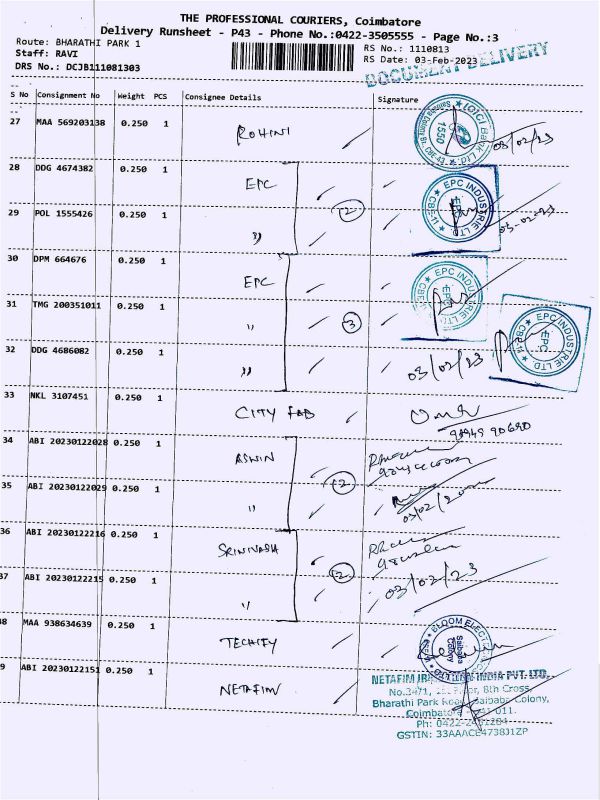 THE PROFESSIONAL COURIERS, Coimbatore
Delivery Runsheet - P43 - Phone No.:0422-3505555 - Page No.:3
Route: BHARATHI PARK 1 RS No.: 1110813
Staff: RAVI RS Date: 03-Feb-2023
DRS No.: DCJB111081303
DOCUMENT DELIVERY
S No Consignment No Weight PCS Consignee Details Signature
27 MAA 569203138 0.250 1 ROHINI
ICICI Bank Ltd. 1550 03/02/23
28 DDG 4674382 0.250 1 EPC
EPC INDUSTRIE LTD
2
29 POL 1555426 0.250 1 "
03-02-23
30 DPM 664676 0.250 1 EPC
EPC INDUSTRIE LTD
31 TMG 200351011 0.250 1 " 3
EPC INDUSTRIE LTD EPC
32 DDG 4686082 0.250 1 "
03/02/23
33 NKL 3107451 0.250 1 CITY FAB
90690
34 ABI 20230122028 0.250 1 ASWIN
2
35 ABI 20230122029 0.250 1 "
03/02/
36 ABI 20230122216 0.250 1 SRINIVASH
2
37 ABI 20230122215 0.250 1 "
03/02/23
38 MAA 938634639 0.250 1 TECHIFY
BLOOM Saibaba Colony
39 ABI 20230122151 0.250 1 NETAFIM
NETAFIM INDIA PVT. LTD.
No.3471, 8th Cross,
Bharathi Park Road, Saibaba Colony,
Coimbatore 011.
Ph: 0422-
GSTIN: 33AAACE4738J1ZP